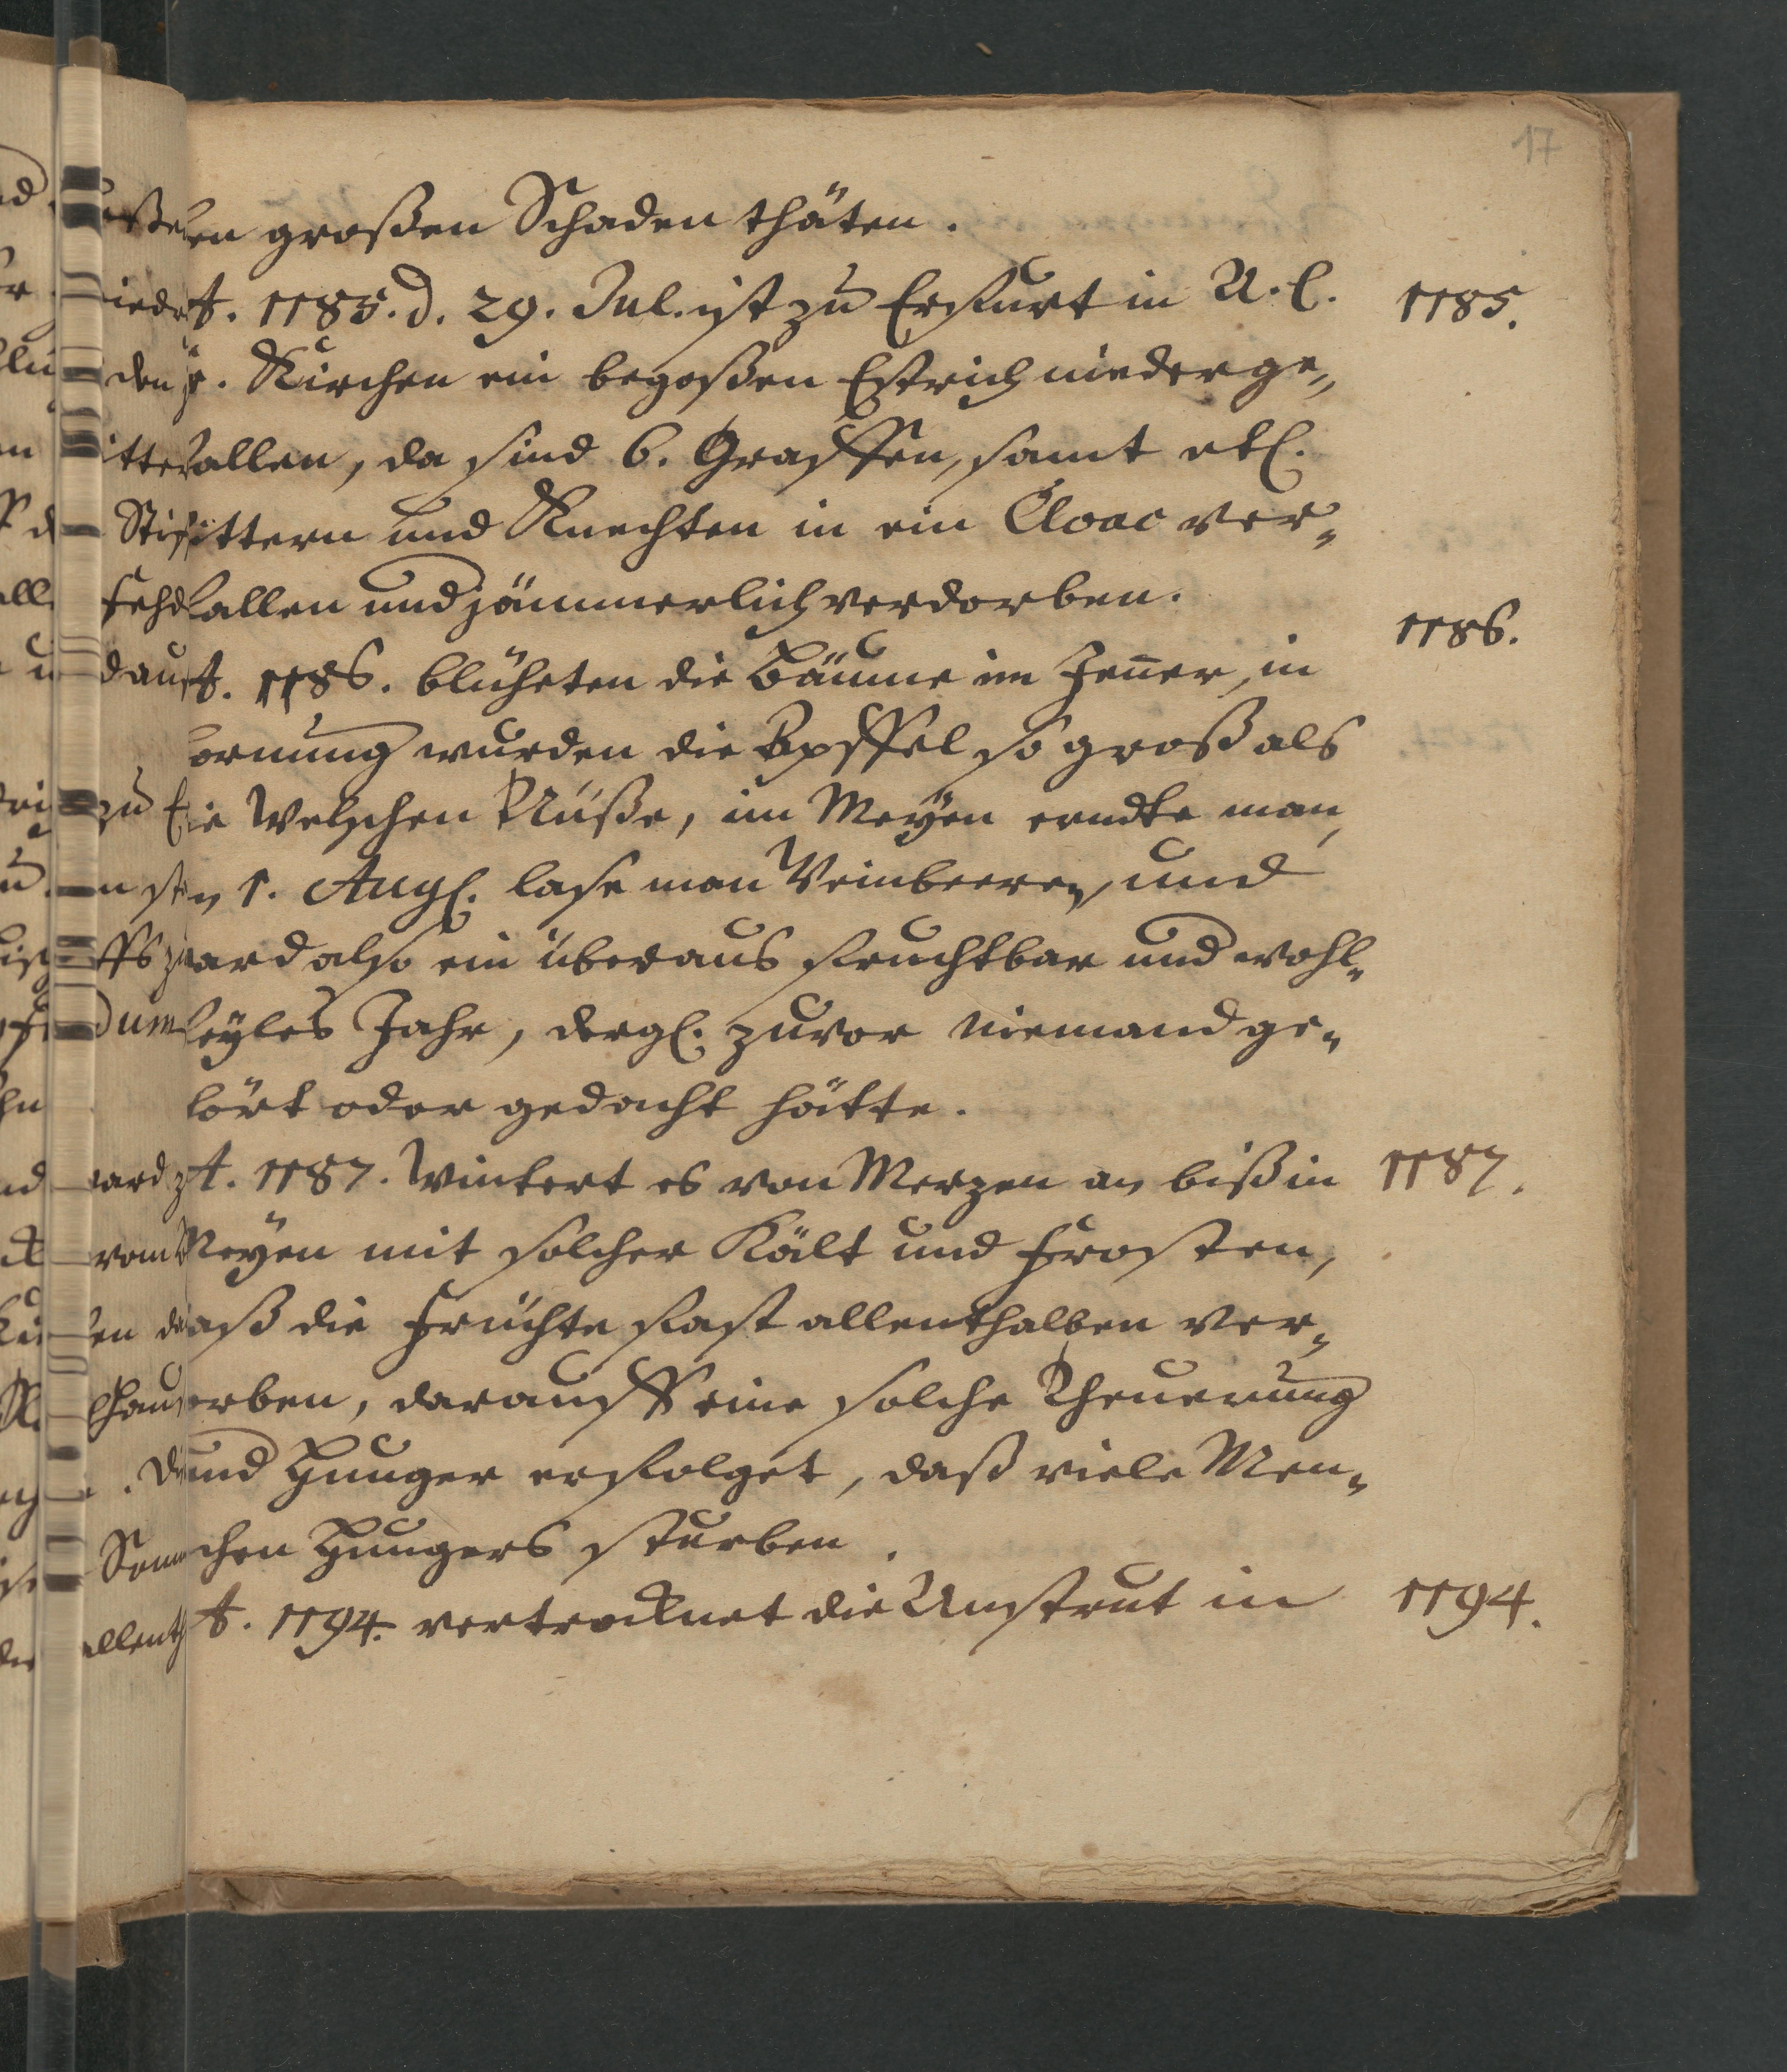 17
len großen Schaden thäten.
A. 1185. d. 29. Jul. ist zu Erffurt in U. L.
Fr. Kirchen ein begoßen Estrich niederge„
fallen, da sind 6. Graffen, samt etl.
Rittern und Knechten in ein Cloac ver„
fallen und jämmerlich verdorben.
A. 1186. blüheten die Bäume im Jen̄er, in
Hornung wurden die Epffel so groß als
die Welschen Nüße, im Meyen erndte man,
den 1. Aug. lase man Weinbeeren, und
ward also ein überaus fruchtbar und wohl„
feyles Jahr, dergl. zuvor niemand ge„
hört oder gedacht hätte.
A. 1187. Wintert es von Merzen an biß in
Meyen mit solcher Kält und Frosten,
daß die Früchte fast allenthalben ver„
dorben, darauff eine solche Theuerung
und Hunger erfolget, daß viele Men„
schen Hungers sturben.
A. 1194. vertrocknet die Unstrut in
1185.
1186.
1187.
1194.